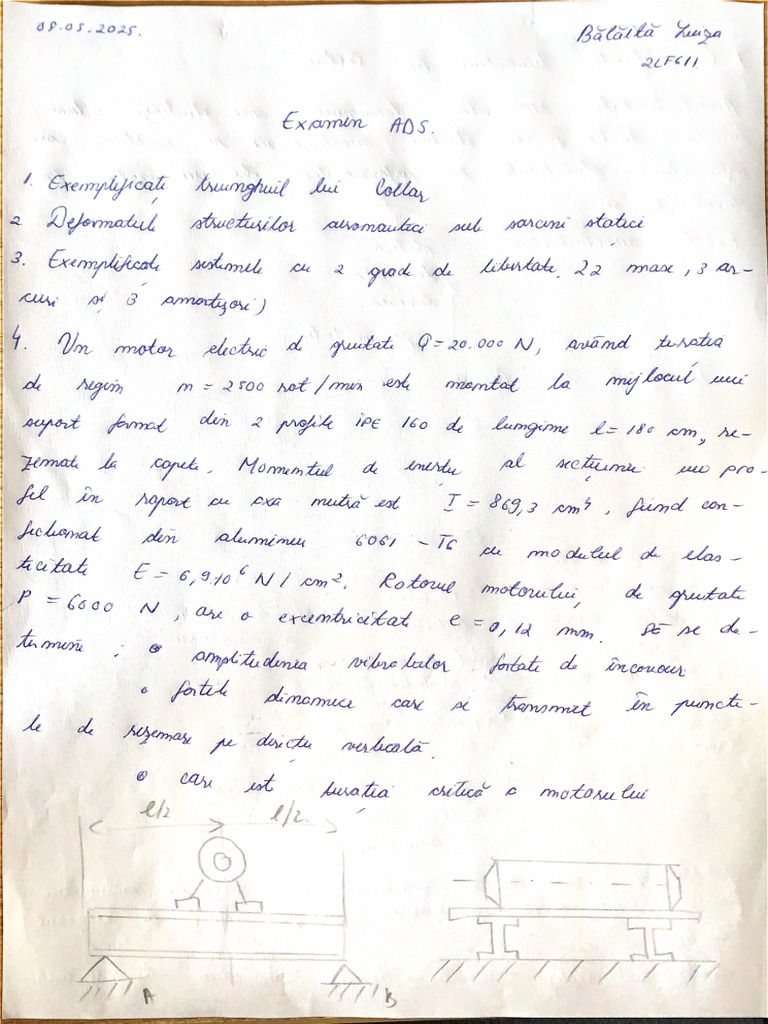 08.05.2025.
Bălăilă Luiza
2LF611
Examen ADS.
1. Exemplificați triunghiul lui Collar
2 Deformatiile structurilor aeronautici sub sarcini statici
3. Exemplificati sistemele cu 2 grade de libertate, 2 2 mase, 3 ar-
curi și 3 amortizori)
4. Un motor electric de greutate Q = 20.000 N, având turatia
de regim n = 2500 rot/min este montat la mijlocul unui
suport format din 2 profile iPE 160 de lungime l = 180 cm, re-
zemate la capete. Momentul de inerție al secțiunii unui pro-
fil în raport cu axa neutră este I = 869,3 cm⁴, fiind con-
fecționat din aluminiu 6061 - T6 cu modulul de elas-
ticitate E = 6,9.10⁶ N/cm². Rotorul motorului, de greutate
P = 6000 N, are o excentricitate e = 0,12 mm. Să se de-
termine : amplitudinea vibratiilor fortate de încovoier
fortele dinamice care se transmit în puncte-
le de rezemare pe direcție verticală.
care este turația critică a motorului
l/2 l/2
A B